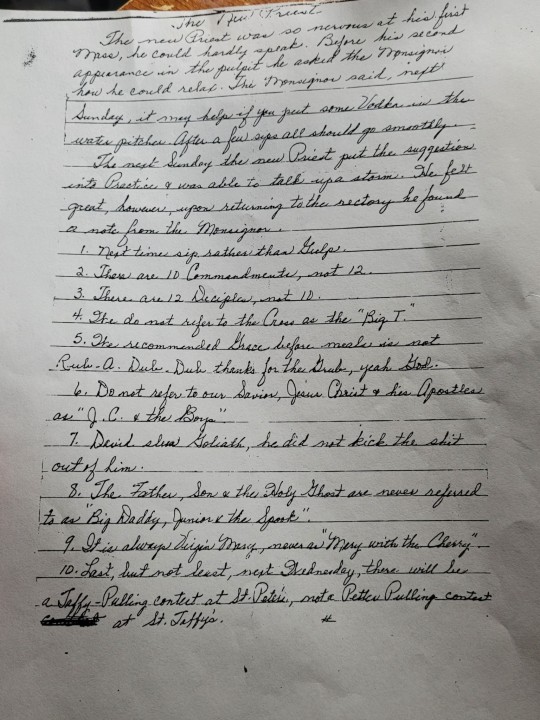 The New Priest
The new Priest was so nervous at his first
Mass, he could hardly speak. Before his second
appearance in the pulpit he asked the Monsignor
how he could relax. The Monsignor said, next
Sunday, it may help if you put some Vodka in the
water pitcher. After a few sips all should go smoothly.
The next Sunday the new Priest put the suggestion
into Practice & was able to talk up a storm. He felt
great, however, upon returning to the rectory he found
a note from the Monsignor.
1. Next time sip rather than Gulp.
2. There are 10 Commandments, not 12.
3. There are 12 Deciples, not 10.
4. We do not refer to the Cross as the "Big T."
5. The recommended Grace before meals is not
Rub-A-Dub-Dub thanks for the Grub, yeah God.
6. Do not refer to our Savior, Jesus Christ & his Apostles
as "J.C. & the Boys"
7. David slew Goliath, he did not kick the shit
out of him.
8. The Father, Son & the Holy Ghost are never referred
to as "Big Daddy, Junior & the Spook".
9. It is always Virgin Mary, never as "Mary with the Cherry".
10. Last, but not least, next Wednesday, there will be
a Taffy-Pulling contest at St. Pete's, not a Petter Pulling contest
at St. Taffy's.